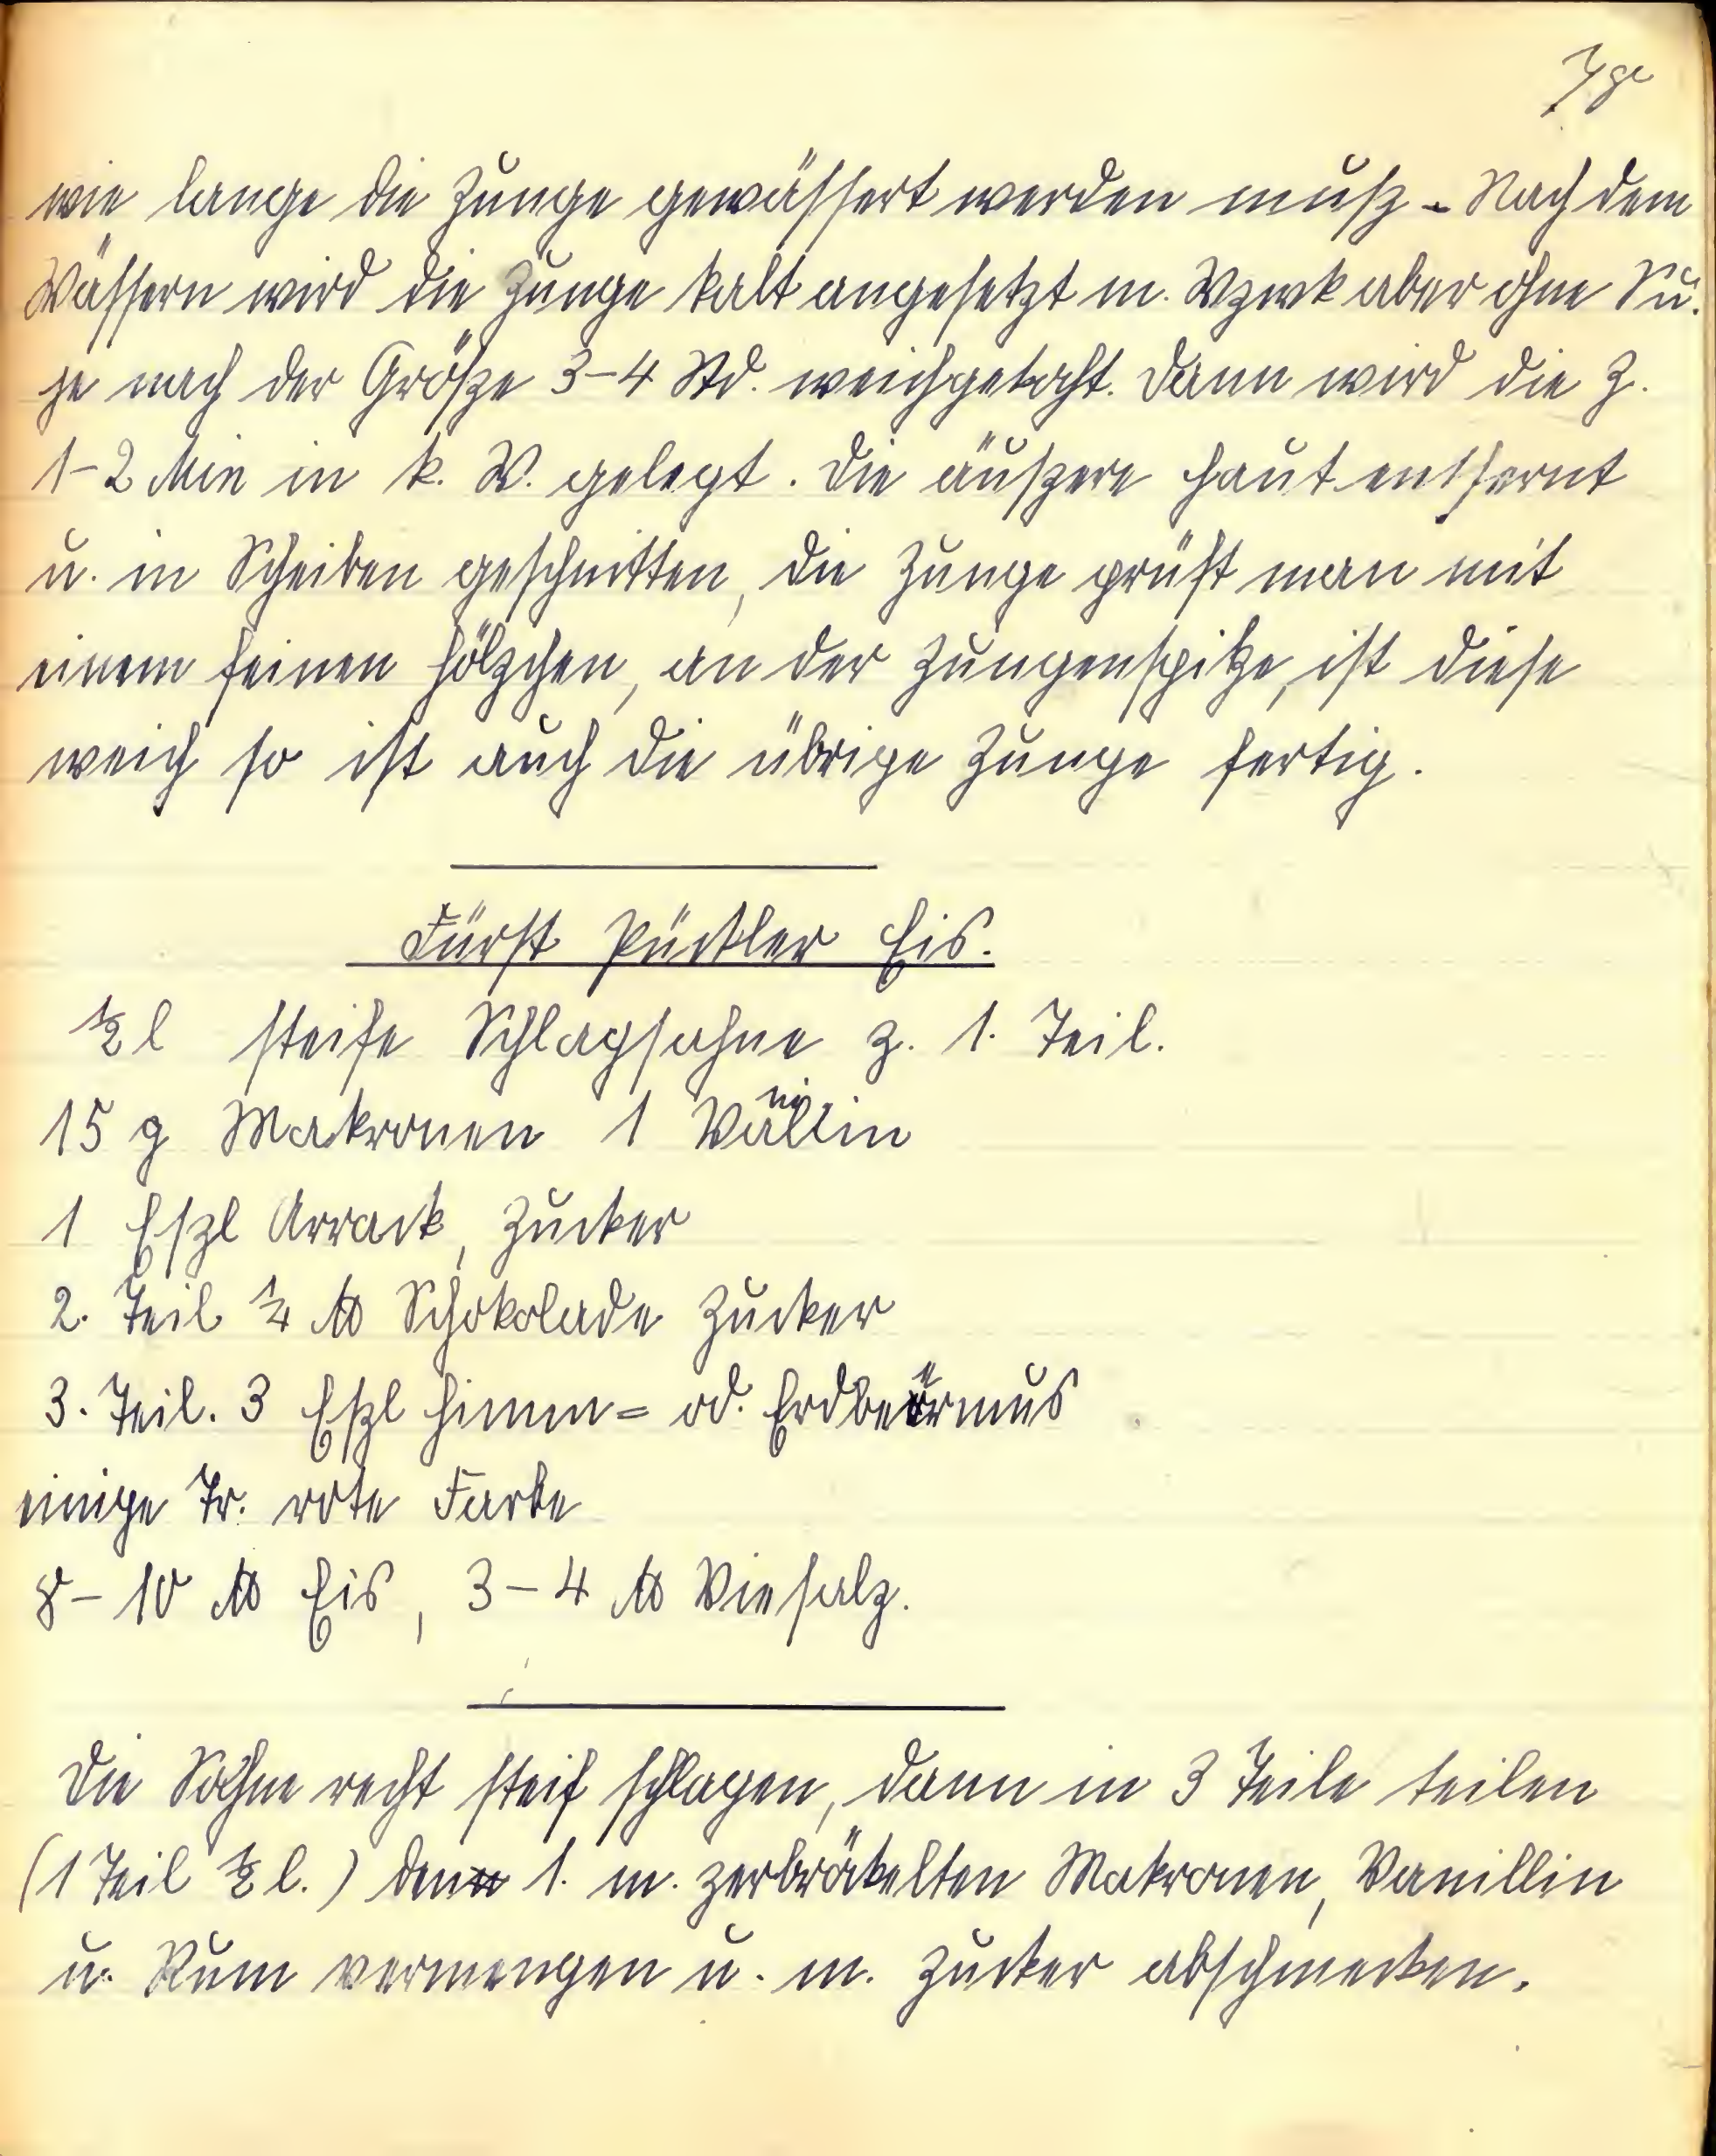 wie lange die Zunge gewässert werden muß. Nach dem
Wässern wird die Zunge kalt angesetzt m. Wzwk aber ohne Su.
je nach der Größe 3-4 Std. weichgekocht. Dann wird die Z.
1-2 Min in k. W. gelegt. Die äußere Haut entfernt
u. in Scheiben geschnitten, die Zunge prüft man mit
einem feinen Hölzchen, an der Zungenspitze, ist diese
weich so ist auch die übrige Zunge fertig.
Fürst Pückler Eis.
½ l steife Schlagsahne z. 1. Teil.
15 g Makronen 1 Vanillin
1 Eßl Arrack, Zucker
2. Teil ¼ ℔ Schokolade Zucker
3. Teil. 3 Eßl Himm= od. Erdbeermus
einige Tr. rote Farbe
8-10 ℔ Eis, 3-4 ℔ Viehsalz.
Die Sahne recht steif schlagen, dann in 3 Teile teilen
(1 Teil ½ l.) den 1. m. zerbräkelten Makronen, Vanillin
u. Rum vermengen u. m. Zucker abschmecken.